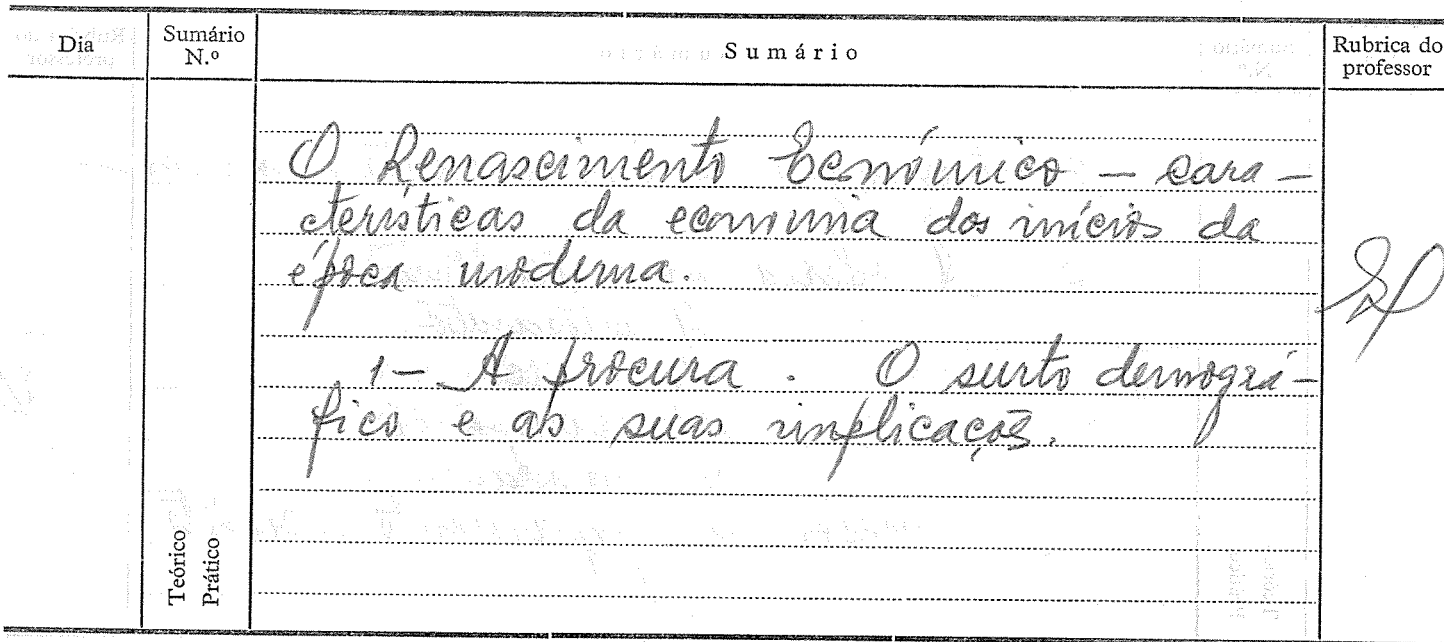 Dia
Sumário N.º
Sumário
Rubrica do professor
O Renascimento Económico — cara-
cterísticas da economia dos inícios da
época moderna.
1 - A procura. O surto demográ-
fico e as suas implicações.
Teórico
Prático